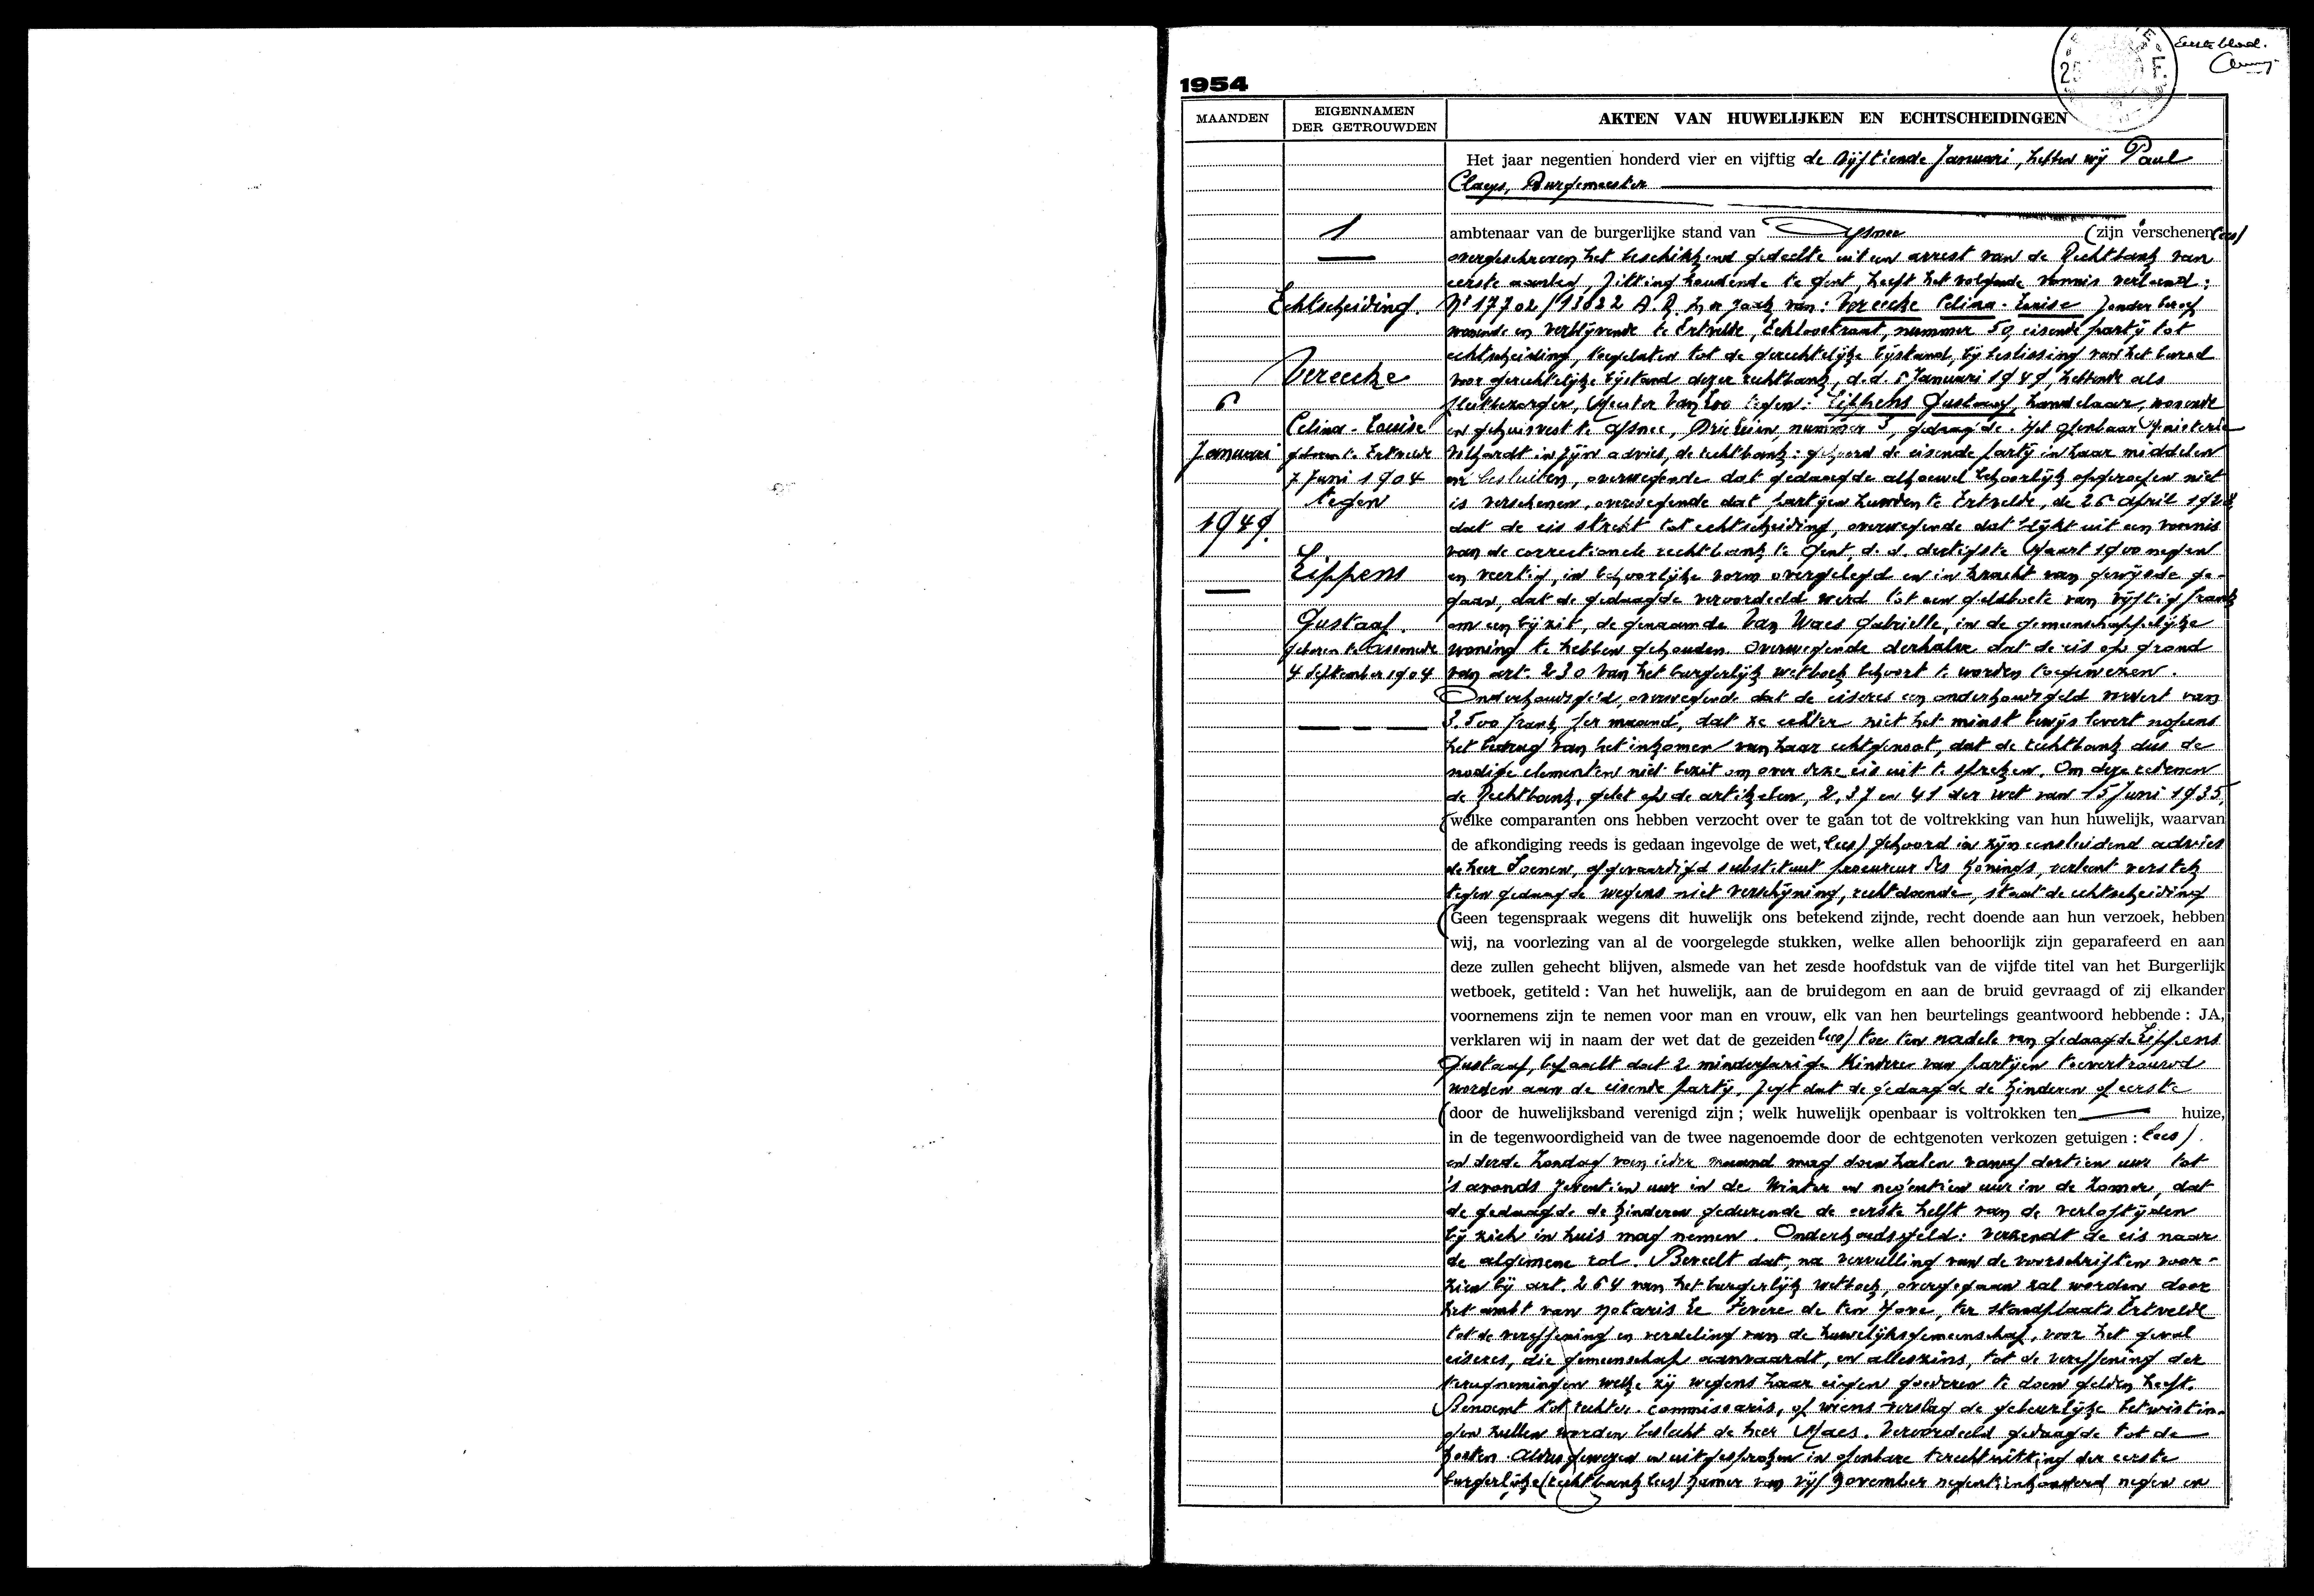 Eerste blad.
25 F.
1954
MAANDEN
EIGENNAMEN
DER GETROUWDEN
AKTEN VAN HUWELIJKEN EN ECHTSCHEIDINGEN
6
Januari
1949.
1
Echtscheiding.
Vereecke
Celina-Louise
geboren te Ertvelde
7 Juni 1904
tegen
Lippens
Gustaaf.
geboren te Assenede
4 September 1904
Het jaar negentien honderd vier en vijftig de vijftiende Januari, hebben wij Paul
Claeys, Burgemeester
ambtenaar van de burgerlijke stand van Afsnee (zijn verschenen lees)
overgeschreven het beschikkend gedeelte uit een arrest van de Rechtbank van
eerste aanleg, zitting houdende te Gent, heeft het volgende vonnis verleend:
Nr 17702/13022 A.R. In zaak van: Vereecke Celina-Louise zonder beroep
wonende en verblijvende te Ertvelde, Eeklostraat, nummer 50, eisende partij tot
echtscheiding, toegelaten tot de gerechtelijke bijstand, bij beslissing van het bureel
voor gerechtelijke bijstand dezer rechtbank, d.d. 6 Januari 1949, hebbende als
pleitbezorger, Meester Van Loo tegen: Lippens Gustaaf, handelaar, wonende
en gehuisvest te Afsnee, Drieleien, nummer 3, gedaagde. Het Openbaar Ministerie
in zijn advies, de rechtbank: gehoord de eisende partij in haar middelen
en besluiten, overwegende dat gedaagde alhoewel behoorlijk opgeroepen niet
is verschenen, overwegende dat partijen huwden te Ertvelde, de 26 April 1928
dat de eis strekt tot echtscheiding, overwegende dat blijkt uit een vonnis
van de correctionele rechtbank te Gent, d.d. dertigste Maart 1900 negen
en veertig, in behoorlijke vorm overgelegd en in kracht van gewijsde ge-
gaan, dat de gedaagde veroordeeld werd tot een geldboete van vijftig frank
om een bijzit, de genaamde Van Waes Gabrielle, in de gemeenschappelijke
woning te hebben gehouden. Overwegende derhalve dat de eis op grond
van art. 230 van het burgerlijk wetboek behoort te worden toegewezen.
Onderhoudsgeld, overwegende dat de eiseres een onderhoudsgeld vordert van
3.500 frank per maand, dat ze echter niet het minst bewijs levert nopens
het bedrag van het inkomen van haar echtgenoot, dat de rechtbank dus de
nodige elementen niet bezit om over deze eis uit te spreken. Om deze redenen
de Rechtbank, gelet op de artikelen, 2, 37 en 41 der wet van 15 Juni 1935,
(welke comparanten ons hebben verzocht over te gaan tot de voltrekking van hun huwelijk, waarvan
de afkondiging reeds is gedaan ingevolge de wet, lees) gehoord in zijn eensluidend advies
de heer Soenen, afgevaardigd substituut procureur des Konings, verleent verstek
tegen gedaagde wegens niet verschijning, rechtdoende, staat de echtscheiding
(Geen tegenspraak wegens dit huwelijk ons betekend zijnde, recht doende aan hun verzoek, hebben
wij, na voorlezing van al de voorgelegde stukken, welke allen behoorlijk zijn geparafeerd en aan
deze zullen gehecht blijven, alsmede van het zesde hoofdstuk van de vijfde titel van het Burgerlijk
wetboek, getiteld : Van het huwelijk, aan de bruidegom en aan de bruid gevraagd of zij elkander
voornemens zijn te nemen voor man en vrouw, elk van hen beurtelings geantwoord hebbende : JA,
verklaren wij in naam der wet dat de gezeiden lees) toe ten nadele van gedaagde Lippens
Gustaaf, bepaalt dat 2 minderjarige kinderen van partijen toevertrouwd
worden aan de eisende partij, zegt dat de gedaagde de kinderen op eerste
(door de huwelijksband verenigd zijn ; welk huwelijk openbaar is voltrokken ten huize,
in de tegenwoordigheid van de twee nagenoemde door de echtgenoten verkozen getuigen : lees)
en derde Zondag van ieder maand mag doen halen vanaf dertien uur tot
's avonds zeventien uur in de Winter en negentien uur in de Zomer, dat
de gedaagde de kinderen gedurende de eerste helft van de verloftijden
bij zich in huis mag nemen. Onderhoudsgeld: verzendt de eis naar
de algemene rol. Beveelt dat, na vervulling van de voorschriften voor-
zien bij art. 264 van het burgerlijk wetboek, overgegaan zal worden door
het ambt van notaris Le Fevere de ten Hove, ter standplaats Ertvelde
tot de vereffening en verdeling van de huwelijksgemeenschap, voor het geval
eiseres, die gemeenschap aanvaardt, en alleszins, tot de vereffening der
terugnemingen welke zij wegens haar eigen goederen te doen gelden heeft.
Benoemt tot rechter-commissaris, op wiens verslag de gebeurlijke betwistin-
gen zullen worden beslecht de heer Maes. Veroordeelt gedaagde tot de
kosten. Aldus gewezen en uitgesproken in openbare terechtzitting der eerste
burgerlijke (rechtbank lees) kamer van vijf November negentienhonderd negen en